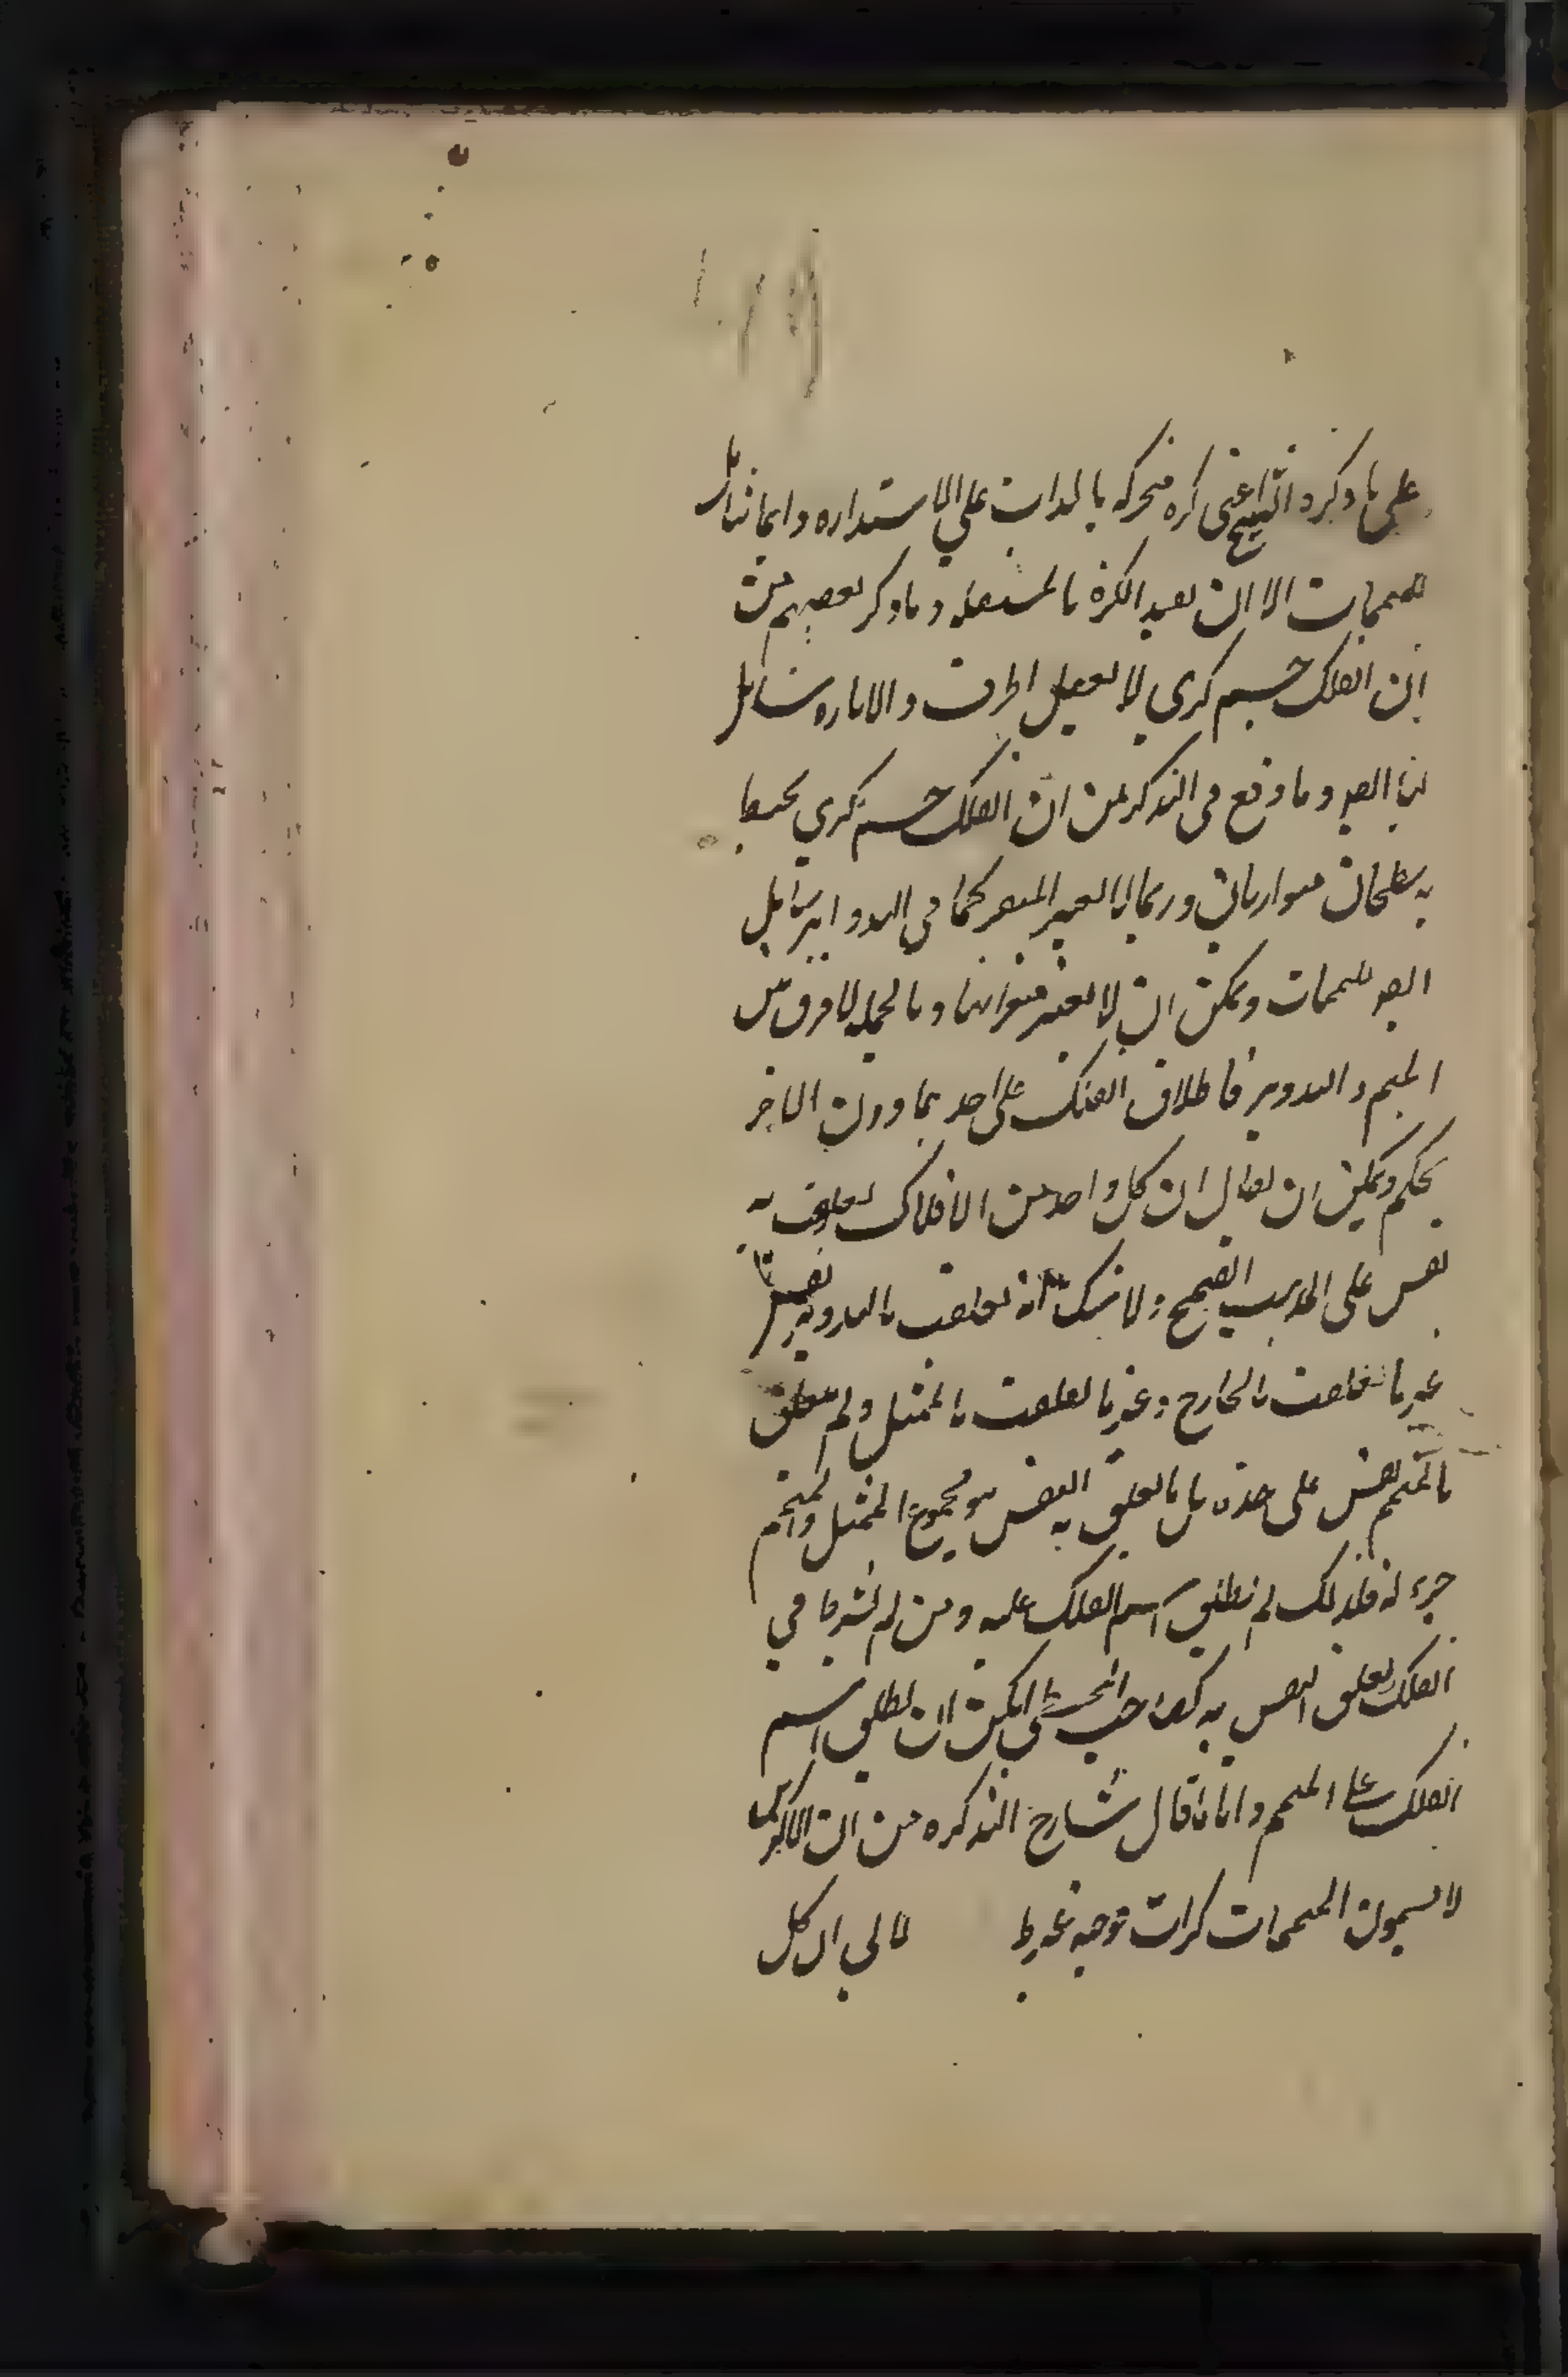 على ما ذكره الشيخ اعنى كره متحركه بالذات على الاستداره دايما شامل
للمتممات الا ان يقيد الكرة بالمستقله و ما ذكر بعضهم من
ان الفلك جسم كرى لا يقبل الخرق و الاناره شامل
لها ايضا و ما وقع فى التذكره من ان الفلك جسم كرى يحيط
به سطحان متوازيان و ربما لا يعتبر المقعر كما في التدوير شامل
ايضا للمتممات و يمكن ان لا يعتبر متوازيهما و بالجمله لا فرق بين
المتمم و التدوير فاطلاق الفلك على احدهما دون الاخر
تحكم و يمكن ان يقال ان كل واحد من الافلاك تعلقت به
نفس على المذهب الصحيح و لا شك انه تعلقت بالتدوير نفس
غير ما تعلقت بالخارج و غير ما تعلقت بالممثل و لم يتعلق
بالمتمم نفس على حده بل ما تعلق به النفس هو مجموع الممثل و المتمم
جزء له فلذلك لم يطلق اسم الفلك عليه و من لم يشترط في
الفلك تعلق النفس به كصاحب المجسطى امكن ان يطلق اسم
الفلك على المتمم و اما ما قال شارح التذكره من ان الاكثرين
لا يسمون المتممات كرات توجه غير ط لما لي ان كل